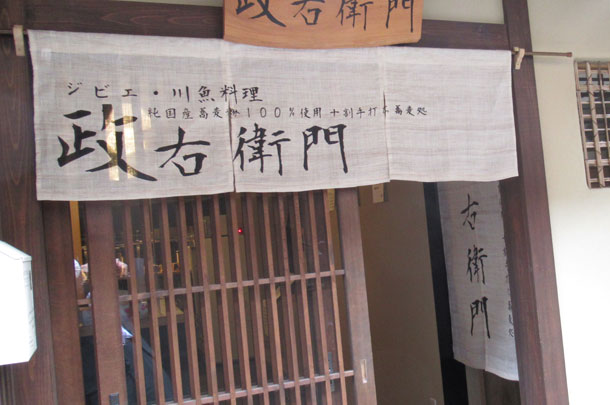 政右衛門
ジビエ・川魚料理
純国産蕎麦粉100%使用 十割手打ち蕎麦処
政右衛門
右衛門